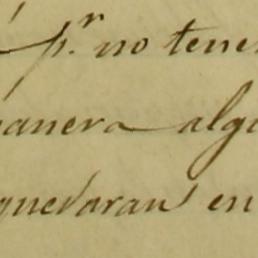 p.r no tene
anera algu
quedaran en